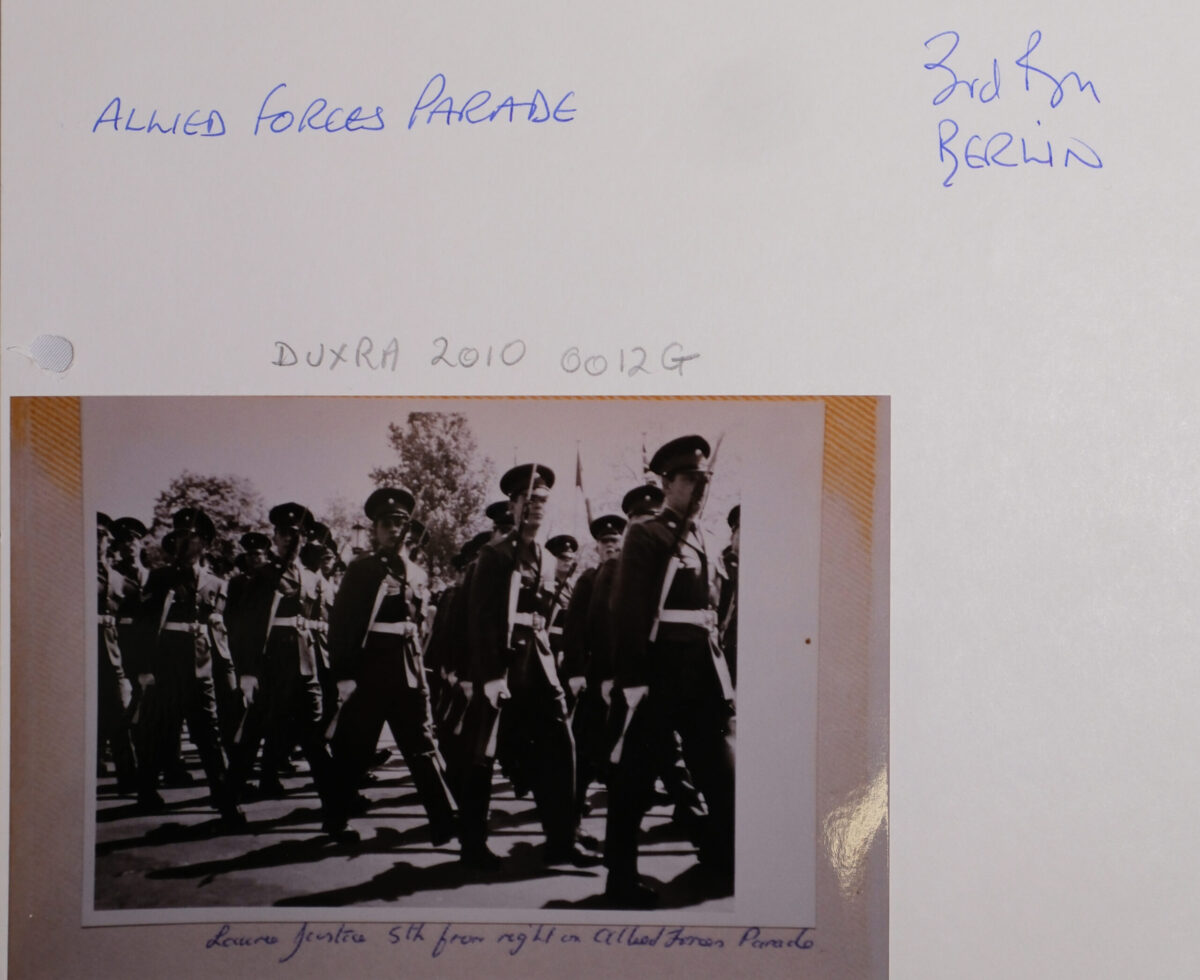 ALLIED FORCES PARADE
3rd Bn
BERLIN
DUXRA 2010 0012G
Justice 5th from right on Allied Forces Parade